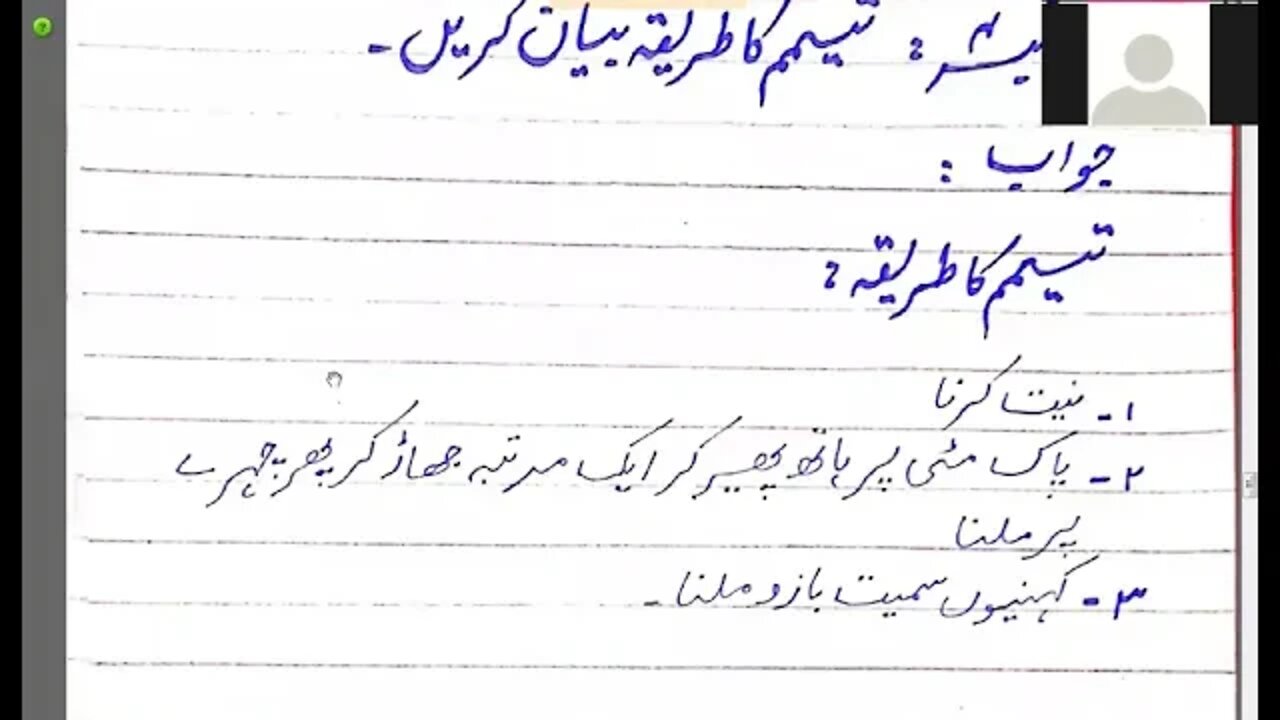 تیمم کا طریقہ بیان کریں۔
جواب :
تیمم کا طریقہ :
۱- نیت کرنا
۲- پاک مٹی پر ہاتھ پھیر کر ایک مرتبہ جھاڑ کر پھر چہرے
پر ملنا
۳- کہنیوں سمیت بازو ملنا۔